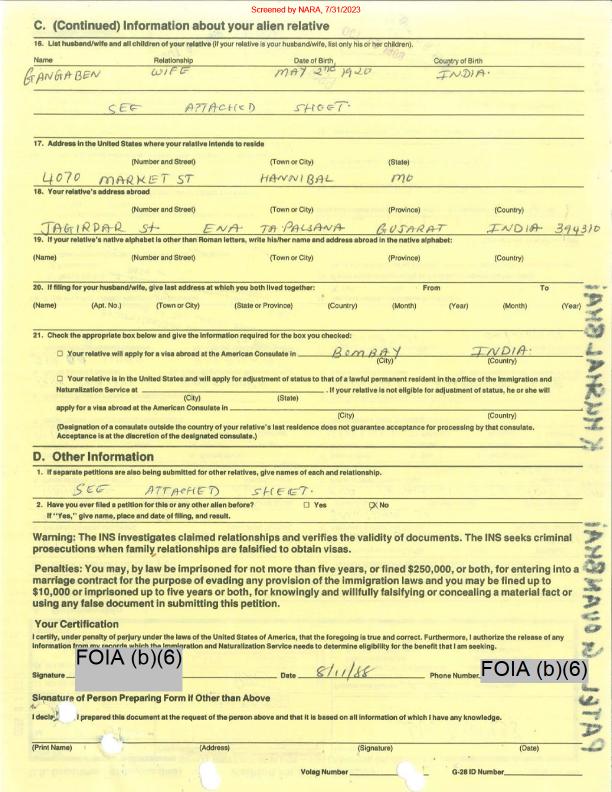 Screened by NARA, 7/31/2023
C. (Continued) Information about your alien relative
16. List husband/wife and all children of your relative (if your relative is your husband/wife, list only his or her children).
Name Relationship Date of Birth Country of Birth
GANGABEN WIFE MAY 2nd 1920 INDIA.
SEE ATTACHED SHEET.
17. Address in the United States where your relative intends to reside
(Number and Street) (Town or City) (State)
4070 MARKET ST HANNIBAL MO
18. Your relative's address abroad
(Number and Street) (Town or City) (Province) (Country)
JAGIRDAR St ENA TA PALSANA GUJARAT INDIA 394310
19. If your relative's native alphabet is other than Roman letters, write his/her name and address abroad in the native alphabet:
(Name) (Number and Street) (Town or City) (Province) (Country)
20. If filing for your husband/wife, give last address at which you both lived together: From To
(Name) (Apt. No.) (Town or City) (State or Province) (Country) (Month) (Year) (Month) (Year)
21. Check the appropriate box below and give the information required for the box you checked:
☐ Your relative will apply for a visa abroad at the American Consulate in BOMBAY INDIA.
(City) (Country)
☐ Your relative is in the United States and will apply for adjustment of status to that of a lawful permanent resident in the office of the Immigration and
Naturalization Service at . If your relative is not eligible for adjustment of status, he or she will
(City) (State)
apply for a visa abroad at the American Consulate in
(City) (Country)
(Designation of a consulate outside the country of your relative's last residence does not guarantee acceptance for processing by that consulate.
Acceptance is at the discretion of the designated consulate.)
D. Other Information
1. If separate petitions are also being submitted for other relatives, give names of each and relationship.
SEE ATTACHED SHEET.
2. Have you ever filed a petition for this or any other alien before? ☐ Yes ☒ No
If "Yes," give name, place and date of filing, and result.
Warning: The INS investigates claimed relationships and verifies the validity of documents. The INS seeks criminal
prosecutions when family relationships are falsified to obtain visas.
Penalties: You may, by law be imprisoned for not more than five years, or fined $250,000, or both, for entering into a
marriage contract for the purpose of evading any provision of the immigration laws and you may be fined up to
$10,000 or imprisoned up to five years or both, for knowingly and willfully falsifying or concealing a material fact or
using any false document in submitting this petition.
Your Certification
I certify, under penalty of perjury under the laws of the United States of America, that the foregoing is true and correct. Furthermore, I authorize the release of any
information from my records which the Immigration and Naturalization Service needs to determine eligibility for the benefit that I am seeking.
FOIA (b)(6) FOIA (b)(6)
Signature Date 8/11/88 Phone Number
Signature of Person Preparing Form if Other than Above
I prepared this document at the request of the person above and that it is based on all information of which I have any knowledge.
(Print Name) (Address) (Signature) (Date)
Volag Number G-28 ID Number